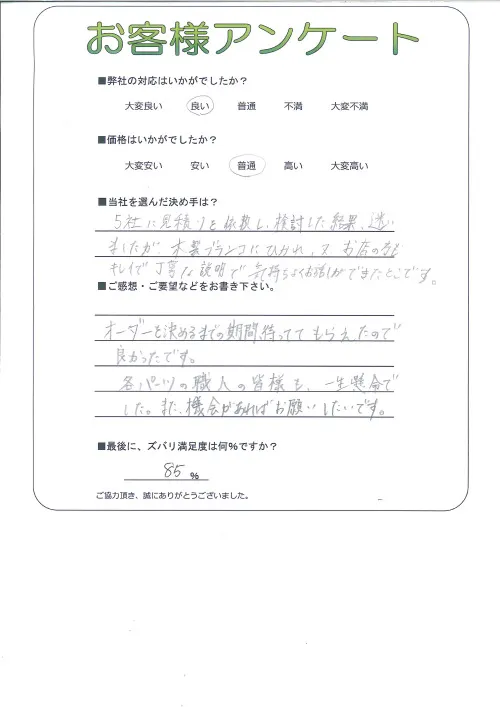 お客様アンケート
■弊社の対応はいかがでしたか？
大変良い 良い 普通 不満 大変不満
■価格はいかがでしたか？
大変安い 安い 普通 高い 大変高い
■当社を選んだ決め手は？
5社に見積りを依頼し、検討した結果、迷い
ましたが 木製ブランコにひかれ、又 お店の方も
キレイで丁寧な説明で 気持ちよくお話しができたとこです。
■ご感想・ご要望などをお書き下さい。
オーダーを決めるまでの期間、待ってて もらえたので
良かったです。
各パーツの職人の皆様も、一生懸命で
した。また、機会があればお願いしたいです。
■最後に、ズバリ満足度は何％ですか？
85 %
ご協力頂き、誠にありがとうございました。